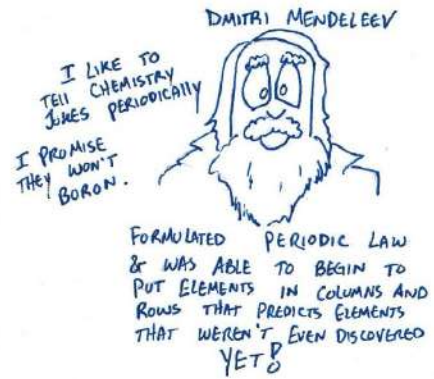 DMITRI MENDELEEV
I LIKE TO
TELL CHEMISTRY
JOKES PERIODICALLY
I PROMISE
THEY WON'T
BORON.
FORMULATED PERIODIC LAW
& WAS ABLE TO BEGIN TO
PUT ELEMENTS IN COLUMNS AND
ROWS THAT PREDICTS ELEMENTS
THAT WEREN'T EVEN DISCOVERED
YET!